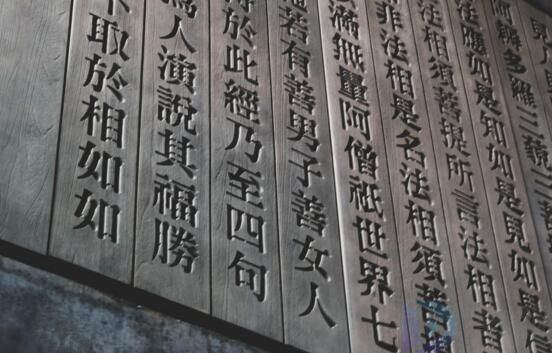 阿耨多羅三藐三
法應如是知如是見如是信
法相須菩提所言法相者
非法相是名法相須菩提
滿無量阿僧祇世界七
若有善男子善女人
於此經乃至四句
爲人演說其福勝
取於相如如